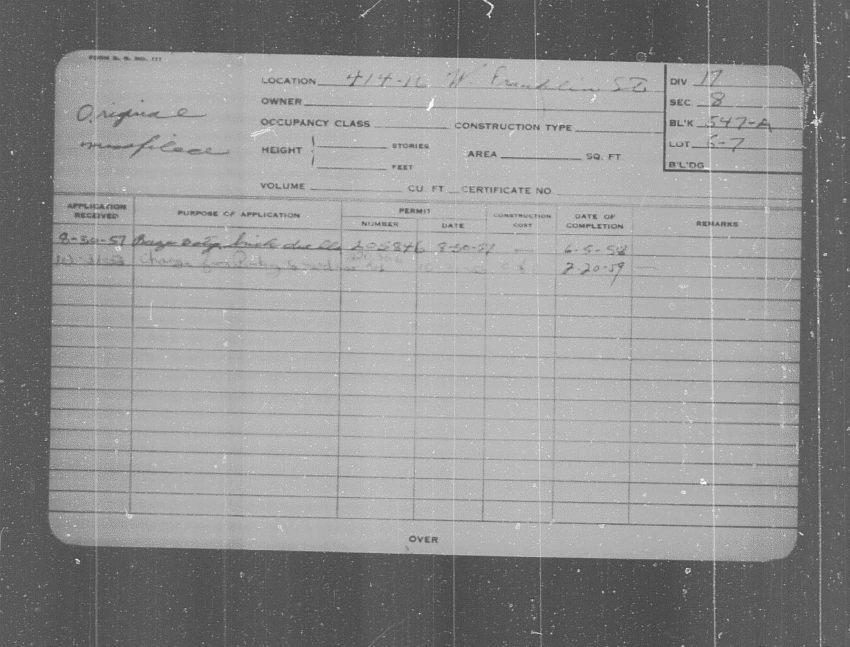 FORM B. S. NO. 111
LOCATION 414-16 W. Franklin St.
DIV 17
OWNER
SEC 8
Original
OCCUPANCY CLASS CONSTRUCTION TYPE
BL'K 547-A
misplaced
HEIGHT STORIES FEET AREA SQ. FT.
LOT 6-7
B'L'DG
VOLUME CU. FT. CERTIFICATE NO.
APPLICATION RECEIVED PURPOSE OF APPLICATION PERMIT NUMBER DATE CONSTRUCTION COST DATE OF COMPLETION REMARKS
8-30-57 Raze 2 sty. brick dwellg 205846 8-30-57 — 6-5-58
Change for Parking 2-20-59 —
OVER